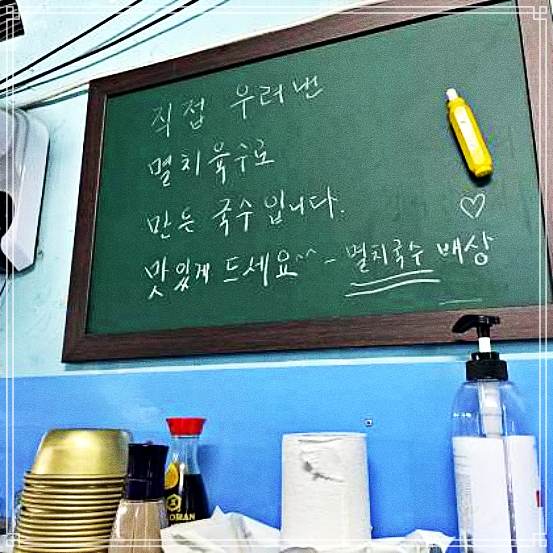 직접 우려낸
멸치육수로
만든 국수입니다.
맛있게 드세요^^ - 멸치국수 배상